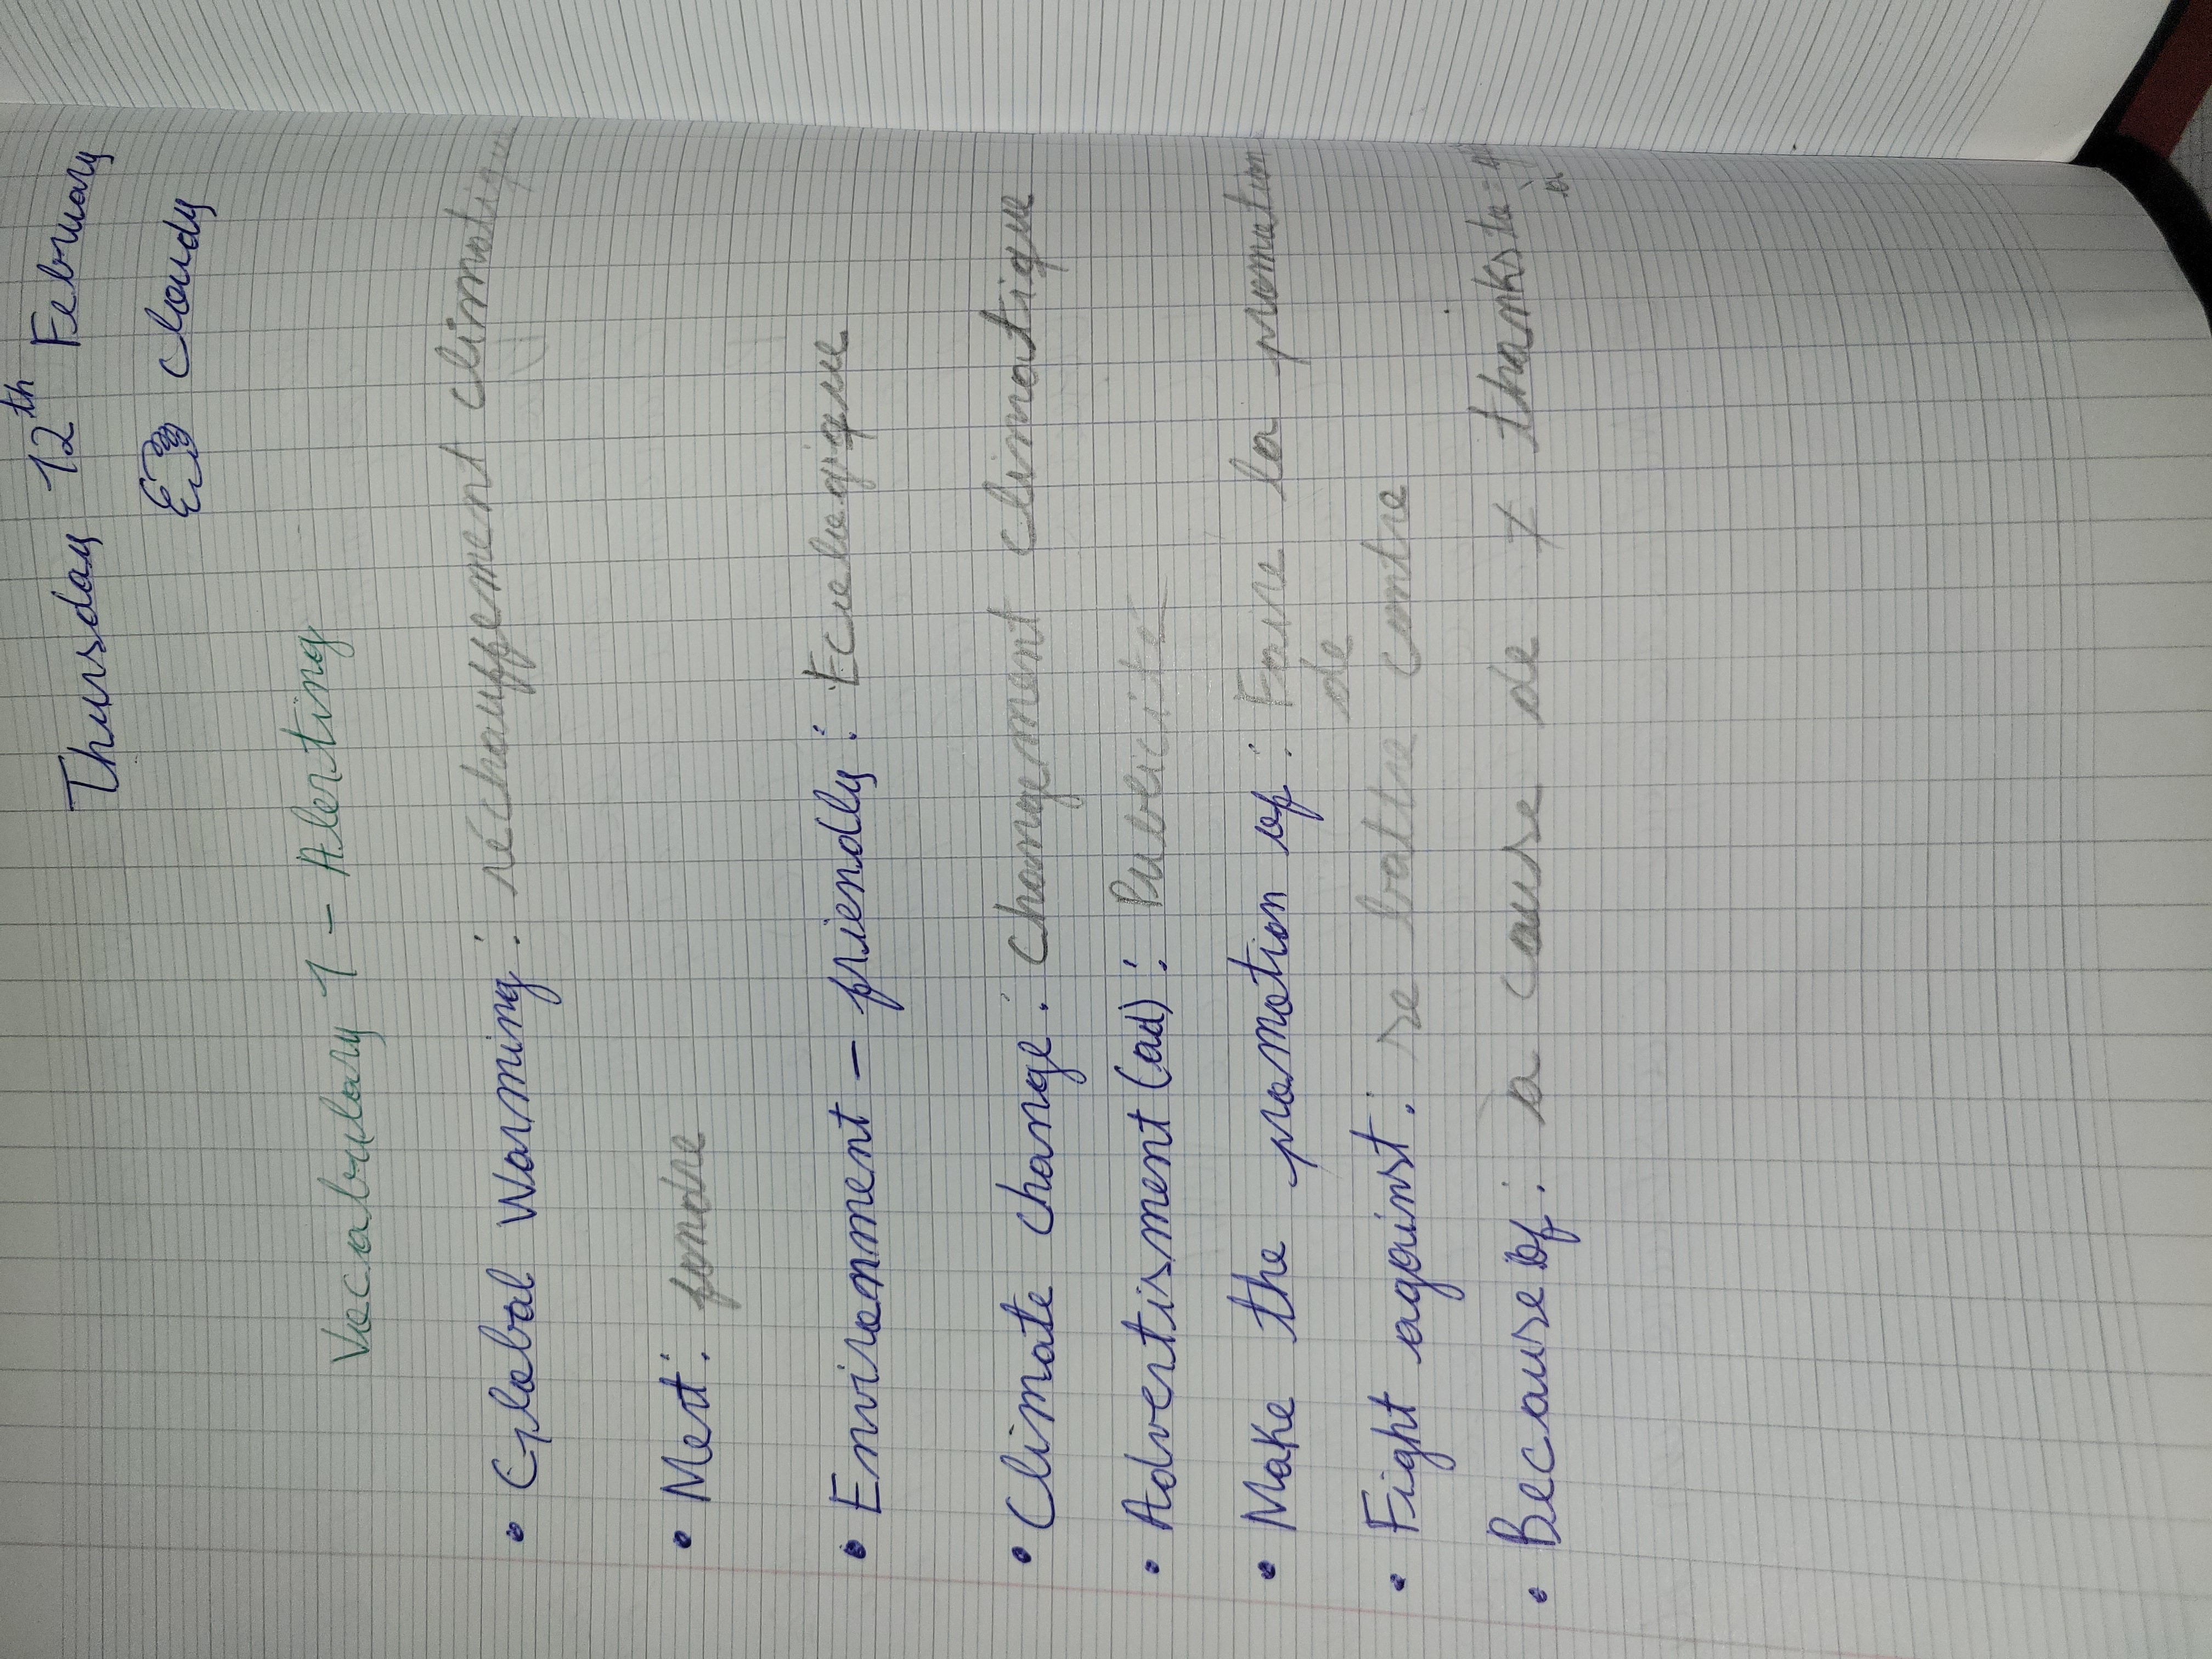 Thursday 12th February
cloudy
Vocabulary 1 - Alerting
• Global Warming : rechauffement climatique
• Melt : fondre
• Environment - friendly : Ecologique
• Climate change : changement climatique
• Advertisment (ad) : Publicité
• Make the promotion of : Faire la promotion
de
• Fight against : se battre contre
• Because of : à cause de ≠ thanks to =
à